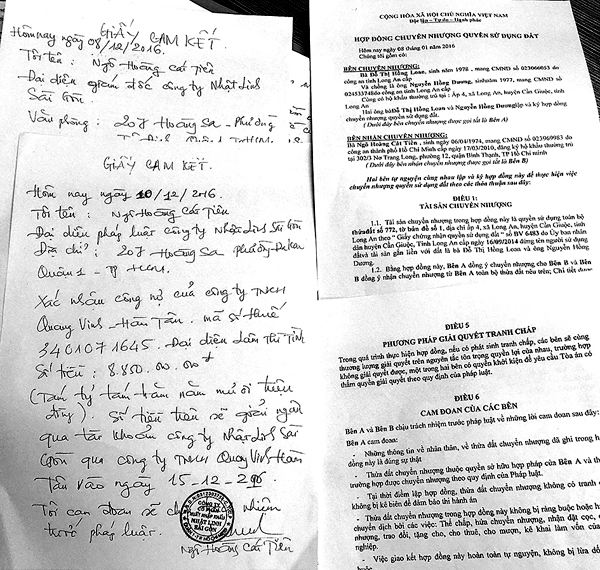 GIẤY CAM KẾT.
Hôm nay ngày 08/12/2016.
Tôi tên: Ngô Hoàng Cát Tiên
Đại diện giám đốc công ty Nhật Linh
Sài Gòn
Văn phòng: 207 Hoàng Sa - Phường
GIẤY CAM KẾT.
Hôm nay ngày 10/12/2016.
Tôi tên: Ngô Hoàng Cát Tiên
Đại diện pháp luật công ty Nhật Linh Sài Gòn
Địa chỉ: 207 Hoàng Sa - Phường Đa Kao
Quận 1 - TP HCM.
Xác nhận công nợ của công ty TNCH
Quang Vinh - Hàm Tân. mã số thuế
3401071645. Đại diện Trần Thị Tình
Số tiền: 8.850.000.000đ
(Tám tỷ tám trăm năm mươi triệu
đồng). Số tiền trên sẽ giải ngân
qua tài khoản công ty Nhật Linh Sài
Gòn qua công ty TNHH Quang Vinh Hàm
Tân vào ngày 15-12-2016
Tôi cam đoan sẽ chịu trách nhiệm
trước pháp luật.
CÔNG TY
CỔ PHẦN
NHẬT LINH
SÀI GÒN
Ngô Hoàng Cát Tiên
CỘNG HÒA XÃ HỘI CHỦ NGHĨA VIỆT NAM
Độc lập - Tự do - Hạnh phúc
HỢP ĐỒNG CHUYỂN NHƯỢNG QUYỀN SỬ DỤNG ĐẤT
Hôm nay ngày 08 tháng 01 năm 2016
Chúng tôi gồm có:
BÊN CHUYỂN NHƯỢNG:
Bà Đỗ Thị Hồng Loan, sinh năm 1978 , mang CMND số 023060053 do
công an tỉnh Long An cấp
Và chồng là ông Nguyễn Hồng Dương, sinh năm 1977, mang CMND số
024533748do công an tỉnh Long An cấp
Cùng có hộ khẩu thường trú tại : Ấp 4, xã Long An, huyện Cần Giuộc, tỉnh
Long An
Hai ông bà Đỗ Thị Hồng Loan và Nguyễn Hồng Dương lập và ký hợp đồng
chuyển nhượng quyền sử dụng đất.
( Dưới đây bên chuyển nhượng được gọi tắt là Bên A)
BÊN NHẬN CHUYỂN NHƯỢNG:
Bà Ngô Hoàng Cát Tiên , sinh ngày 06/04/1974, mang CMND số 023969983 do
công an thành phố Hồ Chí Minh cấp ngày 17/03/2010, đăng ký hộ khẩu thường trú
tại 302/3 Nơ Trang Long, phường 12, quận Bình Thạnh, TP Hồ Chí minh
( Dưới đây bên nhận chuyển nhượng được gọi tắt là Bên B)
Hai bên tự nguyện cùng nhau lập và ký hợp đồng này để thực hiện việc
chuyển nhượng quyền sử dụng đất theo các thỏa thuận sau đây:
ĐIỀU 1:
TÀI SẢN CHUYỂN NHƯỢNG
1.1. Tài sản chuyển nhượng trong hợp đồng này là quyền sử dụng toàn bộ
thửa đất số 772, tờ bản đồ số 1, địa chỉ ấp 4, xã Long An, huyện Cần Giuộc, tỉnh
Long An theo " Giấy chứng nhận quyền sử dụng đất " số BV 6483 do Ủy ban nhân
dân huyện Cần Giuộc, Tỉnh Long An cấp ngày 16/09/2014 đứng tên người sử dụng
đất và tài sản gắn liền với đất là bà Đỗ Thị Hồng Loan và ông Nguyễn Hồng
Dương.
1.2. Bằng hợp đồng này, Bên A đồng ý chuyển nhượng cho Bên B và Bên
B đồng ý nhận chuyển nhượng từ Bên A toàn bộ thửa đất nêu trên; Chi tiết được
ĐIỀU 5
PHƯƠNG PHÁP GIẢI QUYẾT TRANH CHẤP
Trong quá trình thực hiện hợp đồng, nếu có phát sinh tranh chấp, các bên sẽ cùng
thương lượng giải quyết trên nguyên tắc tôn trọng quyền lợi của nhau, trường hợp
không giải quyết được, một trong hai bên có quyền khởi kiện để yêu cầu Tòa án có
thẩm quyền giải quyết theo quy định của pháp luật.
ĐIỀU 6
CAM ĐOAN CỦA CÁC BÊN
Bên A và Bên B chịu trách nhiệm trước pháp luật về những lời cam đoan sau đây:
Bên A cam đoan:
- Những thông tin về nhân thân, về thửa đất chuyển nhượng đã ghi trong hợp
đồng này là đúng sự thật
- Thửa đất chuyển nhượng thuộc quyền sở hữu hợp pháp của Bên A và thuộc
trường hợp được chuyển nhượng theo quy định của Pháp luật.
- Tại thời điểm lập hợp đồng, thửa đất chuyển nhượng không có tranh chấp,
không bị kê biên để đảm bảo thi hành án
- Thửa đất chuyển nhượng trong hợp đồng này không bị ràng buộc hoặc hạn
chuyển dịch bởi các việc: Thế chấp, hứa chuyển nhượng, nhận đặt cọc, chuyển
nhượng, trao đổi, tặng cho, cho thuê, cho mượn, kê khai làm vốn của doanh
nghiệp.
- Việc giao kết hợp đồng này hoàn toàn tự nguyện, không bị lừa dối,
buộc